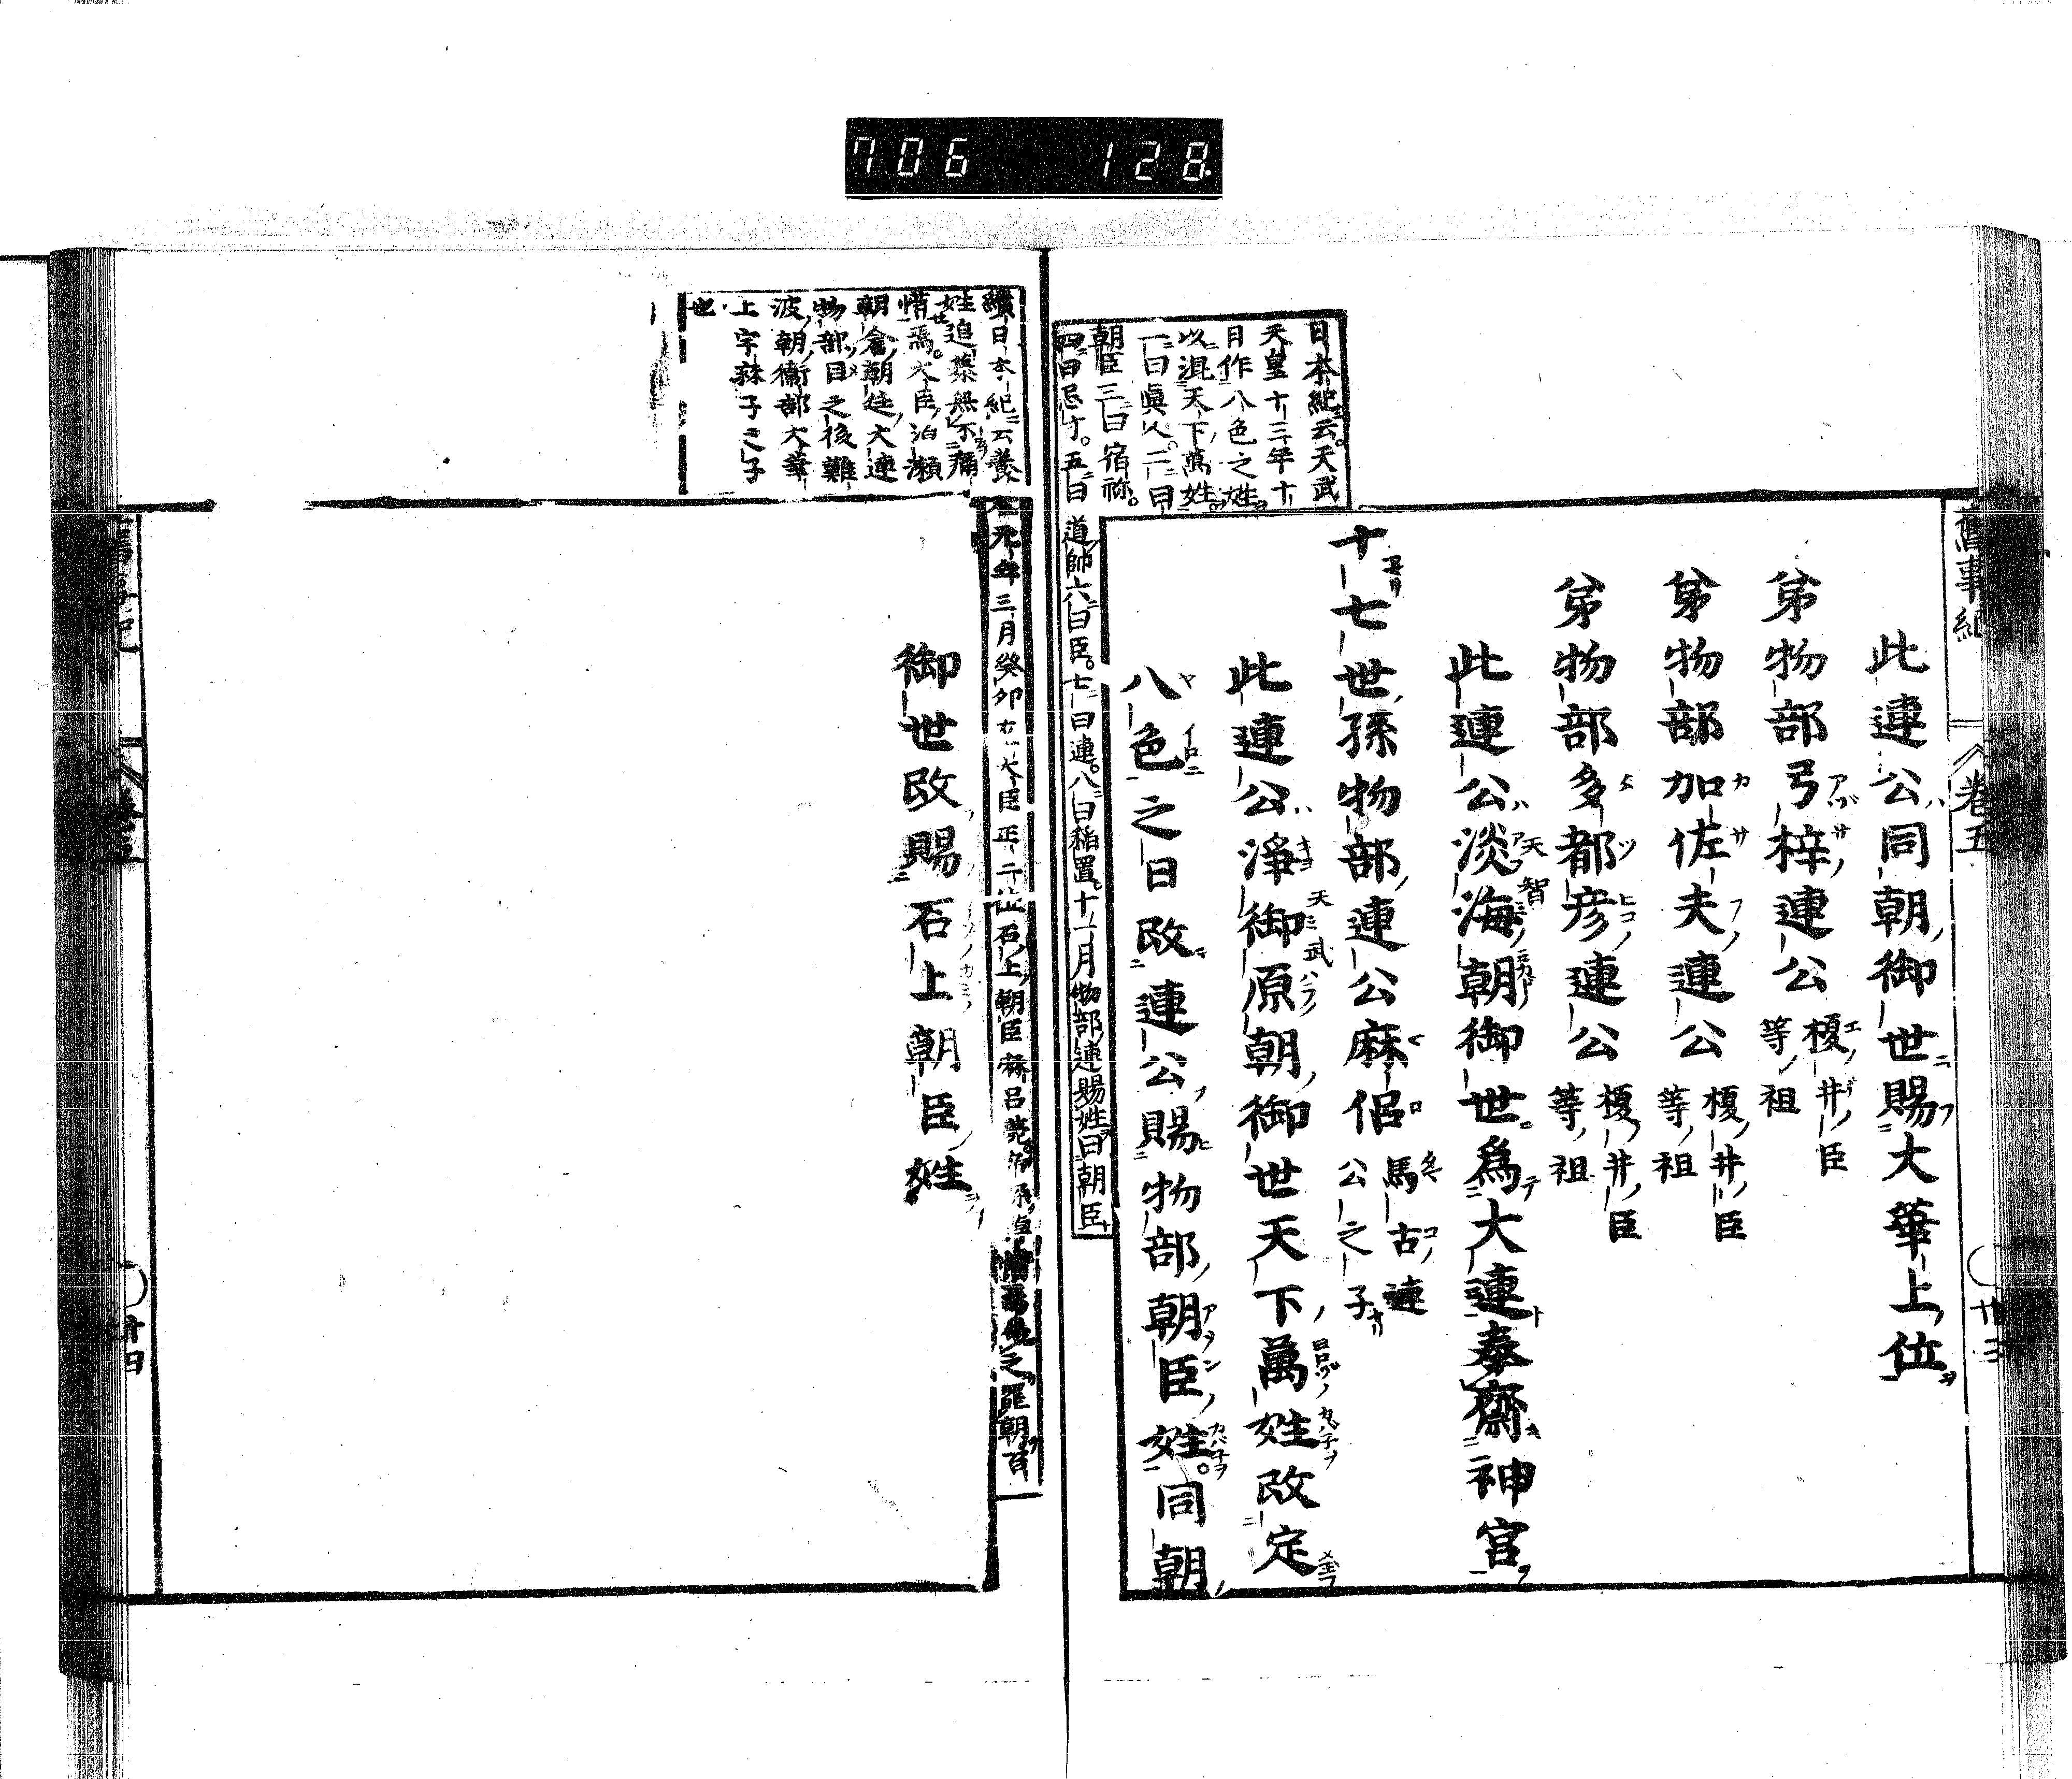 706 128
舊事紀 卷五 廿三
此連公同朝御世賜大華上位
弟物部弓梓連公 榎井臣等祖
弟物部加佐夫連公 榎井臣等祖
弟物部多都彦連公 榎井臣等祖
此連公淡海朝御世爲大連奉齋神宮
天智
十七世孫物部連公麻侶 馬古連公之子
此連公淨御原朝御世天下萬姓改定
天武
八色之日改連公賜物部朝臣姓。同朝
日本紀云。天武
天皇十三年十
月作八色之姓。
以混天下萬姓。
一曰眞人。二曰
朝臣三曰宿祢。
四曰忌寸。五曰道師六曰臣。七曰連。八曰稲置。十一月物部連賜姓曰朝臣
御世改賜石上朝臣姓
續日本紀云養
老元年三月癸卯左大臣正二位石上朝臣麻呂薨
之罷朝百
姓追慕無不痛
惜焉。大臣泊瀬
朝倉朝廷大連
物部目之後難
波朝衞部大華
上宇麻子之子
也